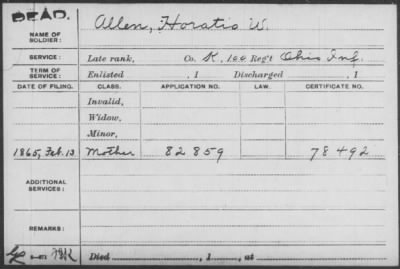 DEAD.
NAME OF SOLDIER: Allen, Horatio W.
SERVICE: Late rank, Co. K, 100 Reg't Ohio Inf.
TERM OF SERVICE: Enlisted , 1 Discharged , 1
DATE OF FILING. CLASS. APPLICATION NO. LAW. CERTIFICATE NO.
Invalid,
Widow,
Minor,
1865, Feb. 13 Mother 82859 78492
ADDITIONAL SERVICES:
REMARKS:
Died , 1 , at